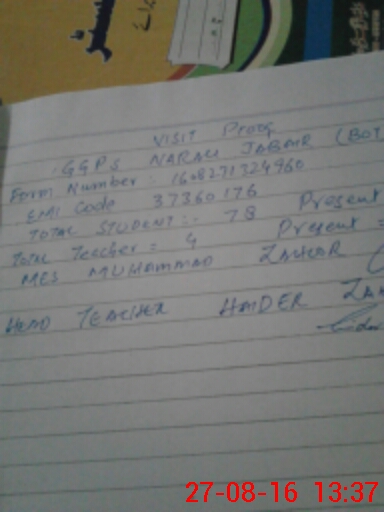 VISIT Proof
GGPS NARALI JABAIR (BOY
Form Number: 1608271324960
EMI Code 37360176
TOTAL STUDENT:- 78 Present
Total Teacher = 4 Present =
MES MUHAMMAD ZAHOOR (
HEAD TEACHER HAIDER ZA
27-08-16 13:37